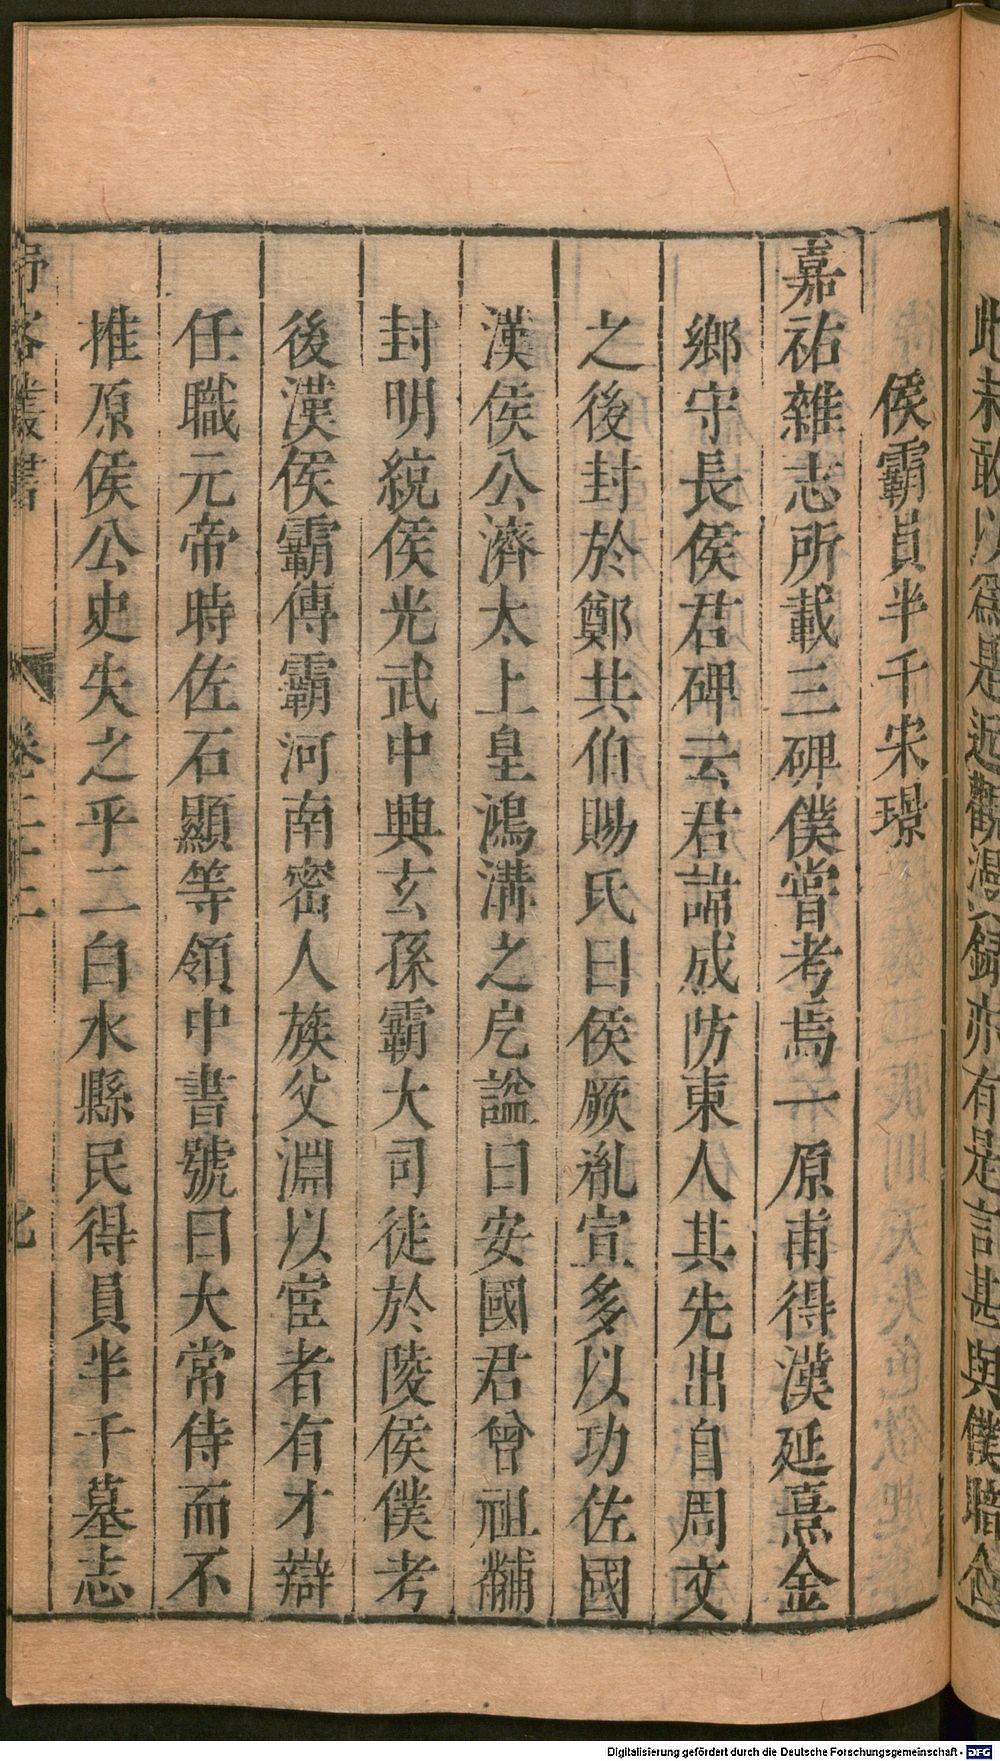 侯霸員半千宋璟
嘉祐雜志所載三碑僕嘗考焉一原甫得漢延熹金
鄉守長侯君碑云君諱成防東人其先出自周文
之後封於鄭共伯賜氏曰侯厥胤宣多以功佐國
漢侯公濟太上皇鴻溝之戹謚曰安國君曾祖黼
封明統侯光武中興玄孫霸大司徒於陵侯僕考
後漢侯霸傳霸河南密人族父淵以宦者有才辯
任職元帝時佐石顯等領中書號曰大常侍而不
推原侯公史失之乎二白水縣民得員半千墓志
Digitalisierung gefördert durch die Deutsche Forschungsgemeinschaft - DFG